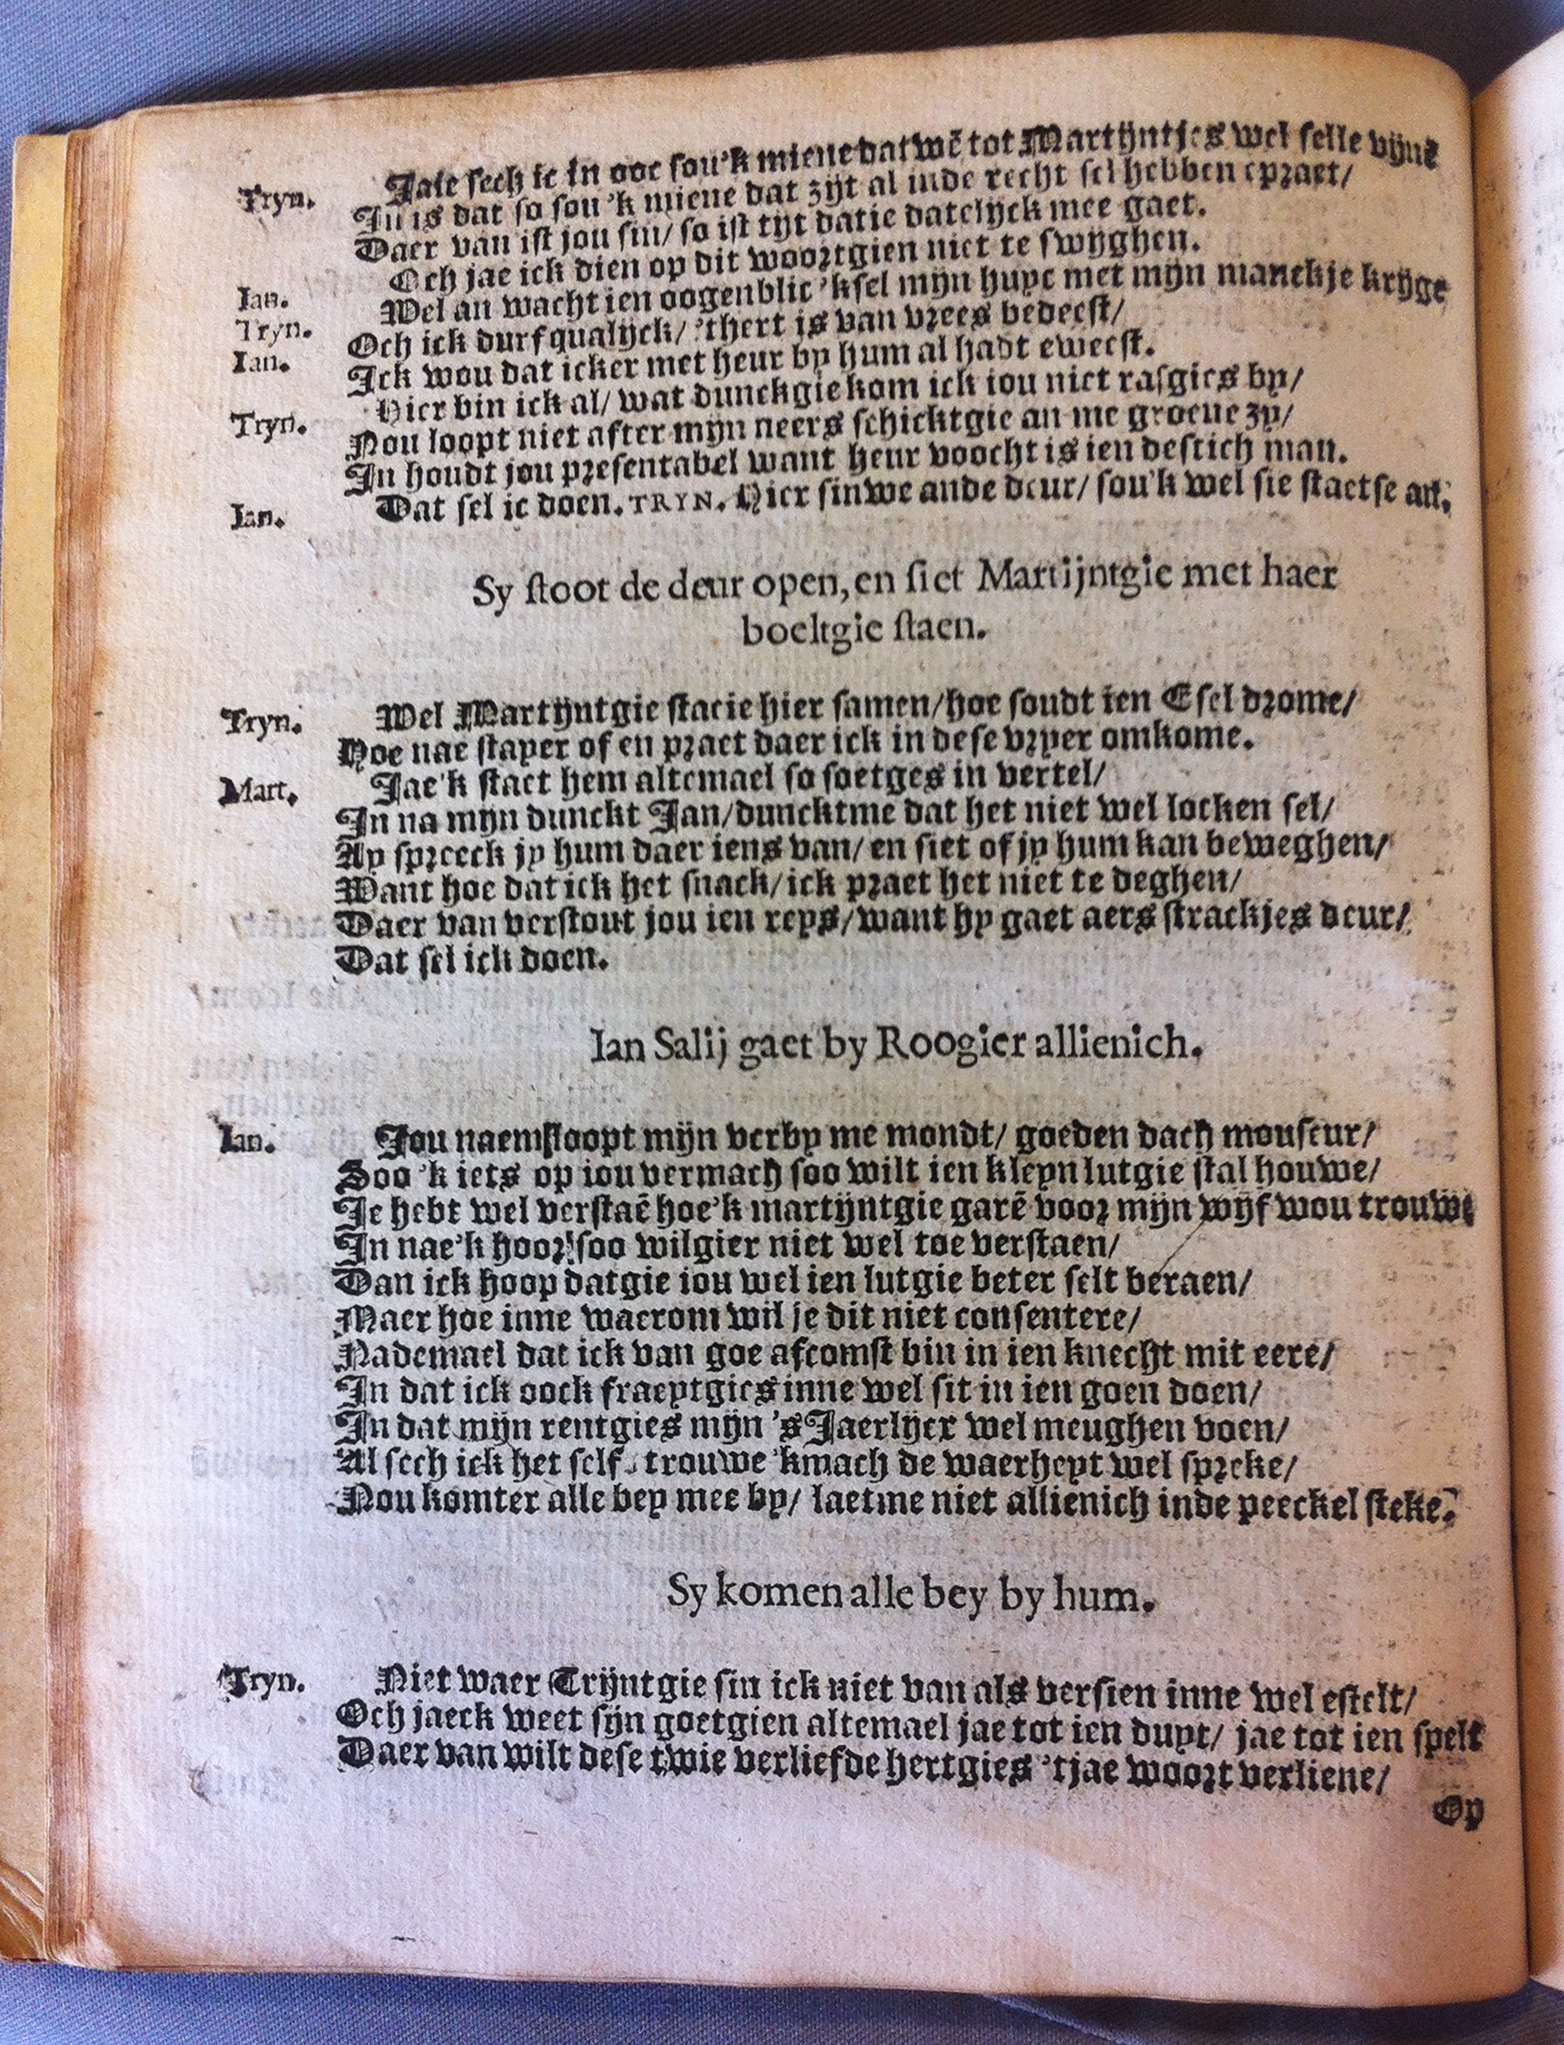 Tryn. Jaie sech ic in ooc sou'k miene dat wē tot Martijntjes wel selle vijnē
In is dat so sou 'k miene dat zijt al inde recht sel hebben epraet/
Daer van ist jou sin/ so ist tijt datie datelijck mee gaet.
Ian. Och jae ick dien op dit woortgien niet te swijghen.
Tryn. Wel an wacht ien oogenblic 'ksel mijn huyc met mijn manckje krijge
Ian. Och ick durf qualijck/ 'thert is van vrees bedeest/
Ick wou dat icker met heur by hum al hadt eweest.
Tryn. Hier bin ick al/ wat dunckgie kom ick iou niet rasgies by/
Nou loopt niet after mijn neers schicktgie an me groene zy/
In houdt jou presentabel want heur voocht is ien destich man.
Ian. Dat sel ic doen. TRYN. Hier sinwe ande deur/ sou'k wel sie staetse an.
Sy stoot de deur open, en siet Martijntgie met haer
boeltgie staen.
Tryn. Wel Martijntgie staeie hier samen/hoe soudt ien Esel drome/
Hoe nae stayer of en praet daer ick in dese vryer omkome.
Mart. Jae'k staet hem altemael so soetges in vertel/
In na mijn dunckt Jan/duncktme dat het niet wel locken sel/
Ay spreeck jy hum daer iens van/ en siet of jy hum kan beweghen/
Want hoe dat ick het snack/ick praet het niet te deghen/
Daer van verstout jou ien reys/want hy gaet aers strackjes deur/
Dat sel ick doen.
Ian Salij gaet by Roogier allienich.
Ian. Jou naem floopt mijn verby me mondt/ goeden dach monseur/
Soo 'k iets op iou vermach soo wilt ien kleyn lutgie stal houwe/
Je hebt wel verstaē hoe'k martijntgie garē voor mijn wijf wou trouwe
In nae'k hoor soo wilgier niet wel toe verstaen/
Dan ick hoop datgie iou wel ien lutgie beter selt beraen/
Maer hoe inne waerom wil je dit niet consentere/
Nademael dat ick van goe afcomst bin in ien knecht mit eere/
In dat ick oock fraeytgies inne wel sit in ien goen doen/
In dat mijn rentgies mijn 's Jaerlijcx wel meughen voen/
Al sech ick het self, trouwe 'kmach de waerheyt wel spreke/
Nou komter alle bey mee by/ laetme niet allienich inde peeckel steke.
Sy komen alle bey by hum.
Tryn. Niet waer Trijntgie sin ick niet van als versien inne wel estelt/
Och jaeck weet sijn goetgien altemael jae tot ien duyt/ jae tot ien spelt
Daer van wilt dese twie verliefde hertgies 'tjae woort verliene/
Op